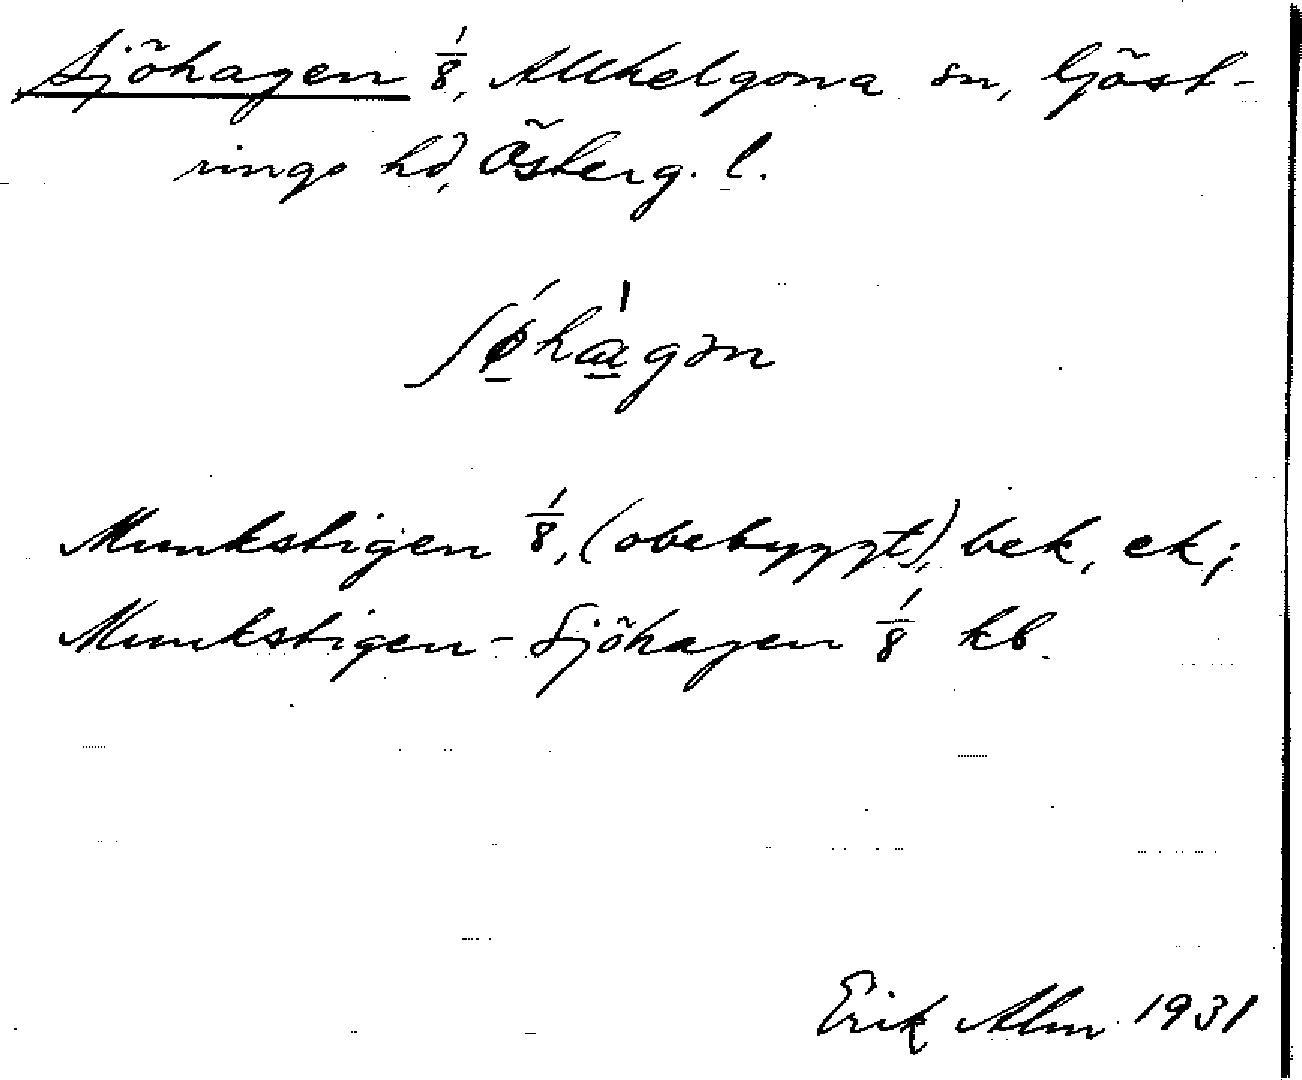 Sjöhagen 1/8, Allhelgona sn, Göst-
rings hd, Österg. l.
ʃǿ̠hɑ̠̀gən
Munkstigen 1/8, (obebyggt), bek, ek;
Munkstigen - Sjöhagen 1/8 kb.
Erik Alm 1931